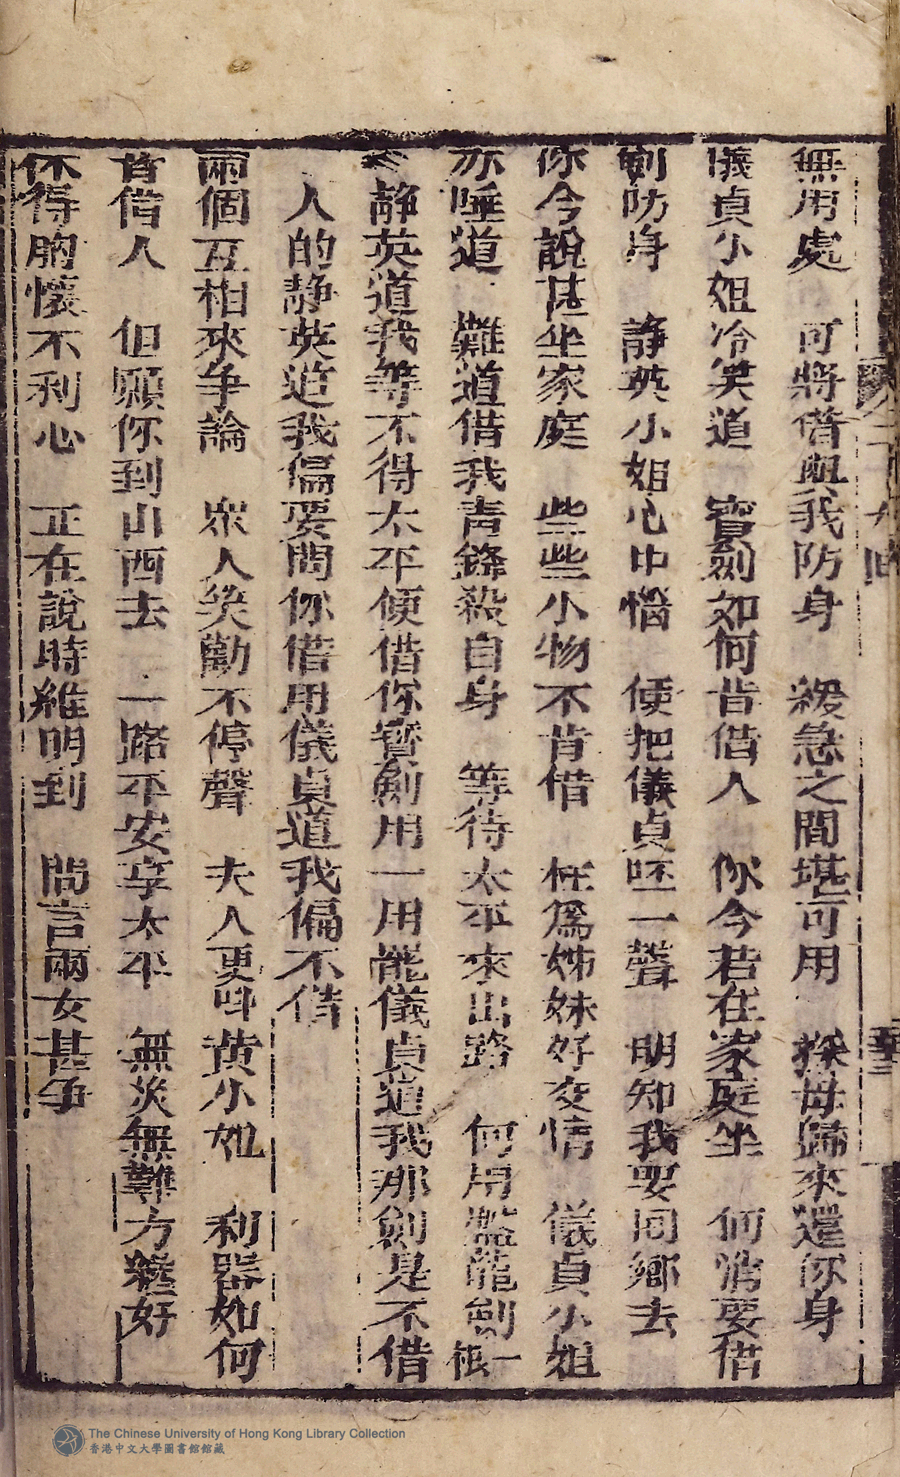 無用處　可將借與我防身　緩急之間堪可用　探母歸來還你身
儀貞小姐冷笑道　寶劍如何肯借人　你今若在家庭坐　何消要借
劍防身　静英小姐心中惱　便把儀貞呸一聲　明知我要同鄉去
你今說甚坐家庭　些些小物不肯借　枉爲姊妹好交情　儀貞小姐
亦唾道　難道借我青鋒殺自身　等待太平來出路　何用盤龍劍一根
静英道我等不得太平便借你寶劍用一用罷儀貞道我那劍是不借
人的静英道我偏要問你借用儀貞道我偏不借
兩個互相來争論　衆人笑勸不停聲　夫人更叫黃小姐　利器如何
肯借人　但願你到山西去　一路平安享太平　無災無難方纔好
休得胸懷不利心　正在說時維明到　問言兩女甚争
The Chinese University of Hong Kong Library Collection
香港中文大學圖書館館藏